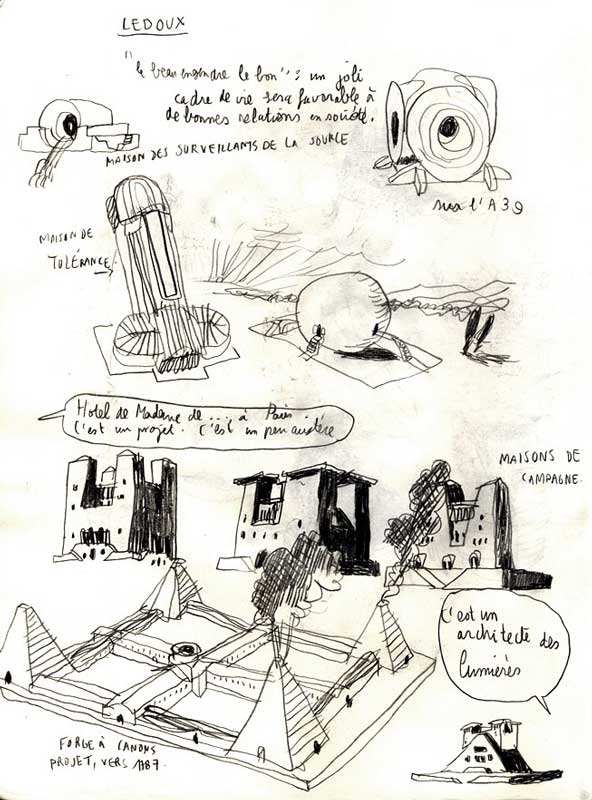 LEDOUX
"le beau engendre le bon" : un joli
cadre de vie sera favorable à
de bonnes relations en société.
MAISON DES SURVEILLANTS DE LA SOURCE
sur l'A39
MAISON DE
TOLÉRANCE
Hotel de Madame de .... à Paris.
C'est un projet. C'est un peu austère
MAISONS DE
CAMPAGNE.
C'est un
architecte des
lumières
FORGE À CANONS
PROJET, VERS 1787.